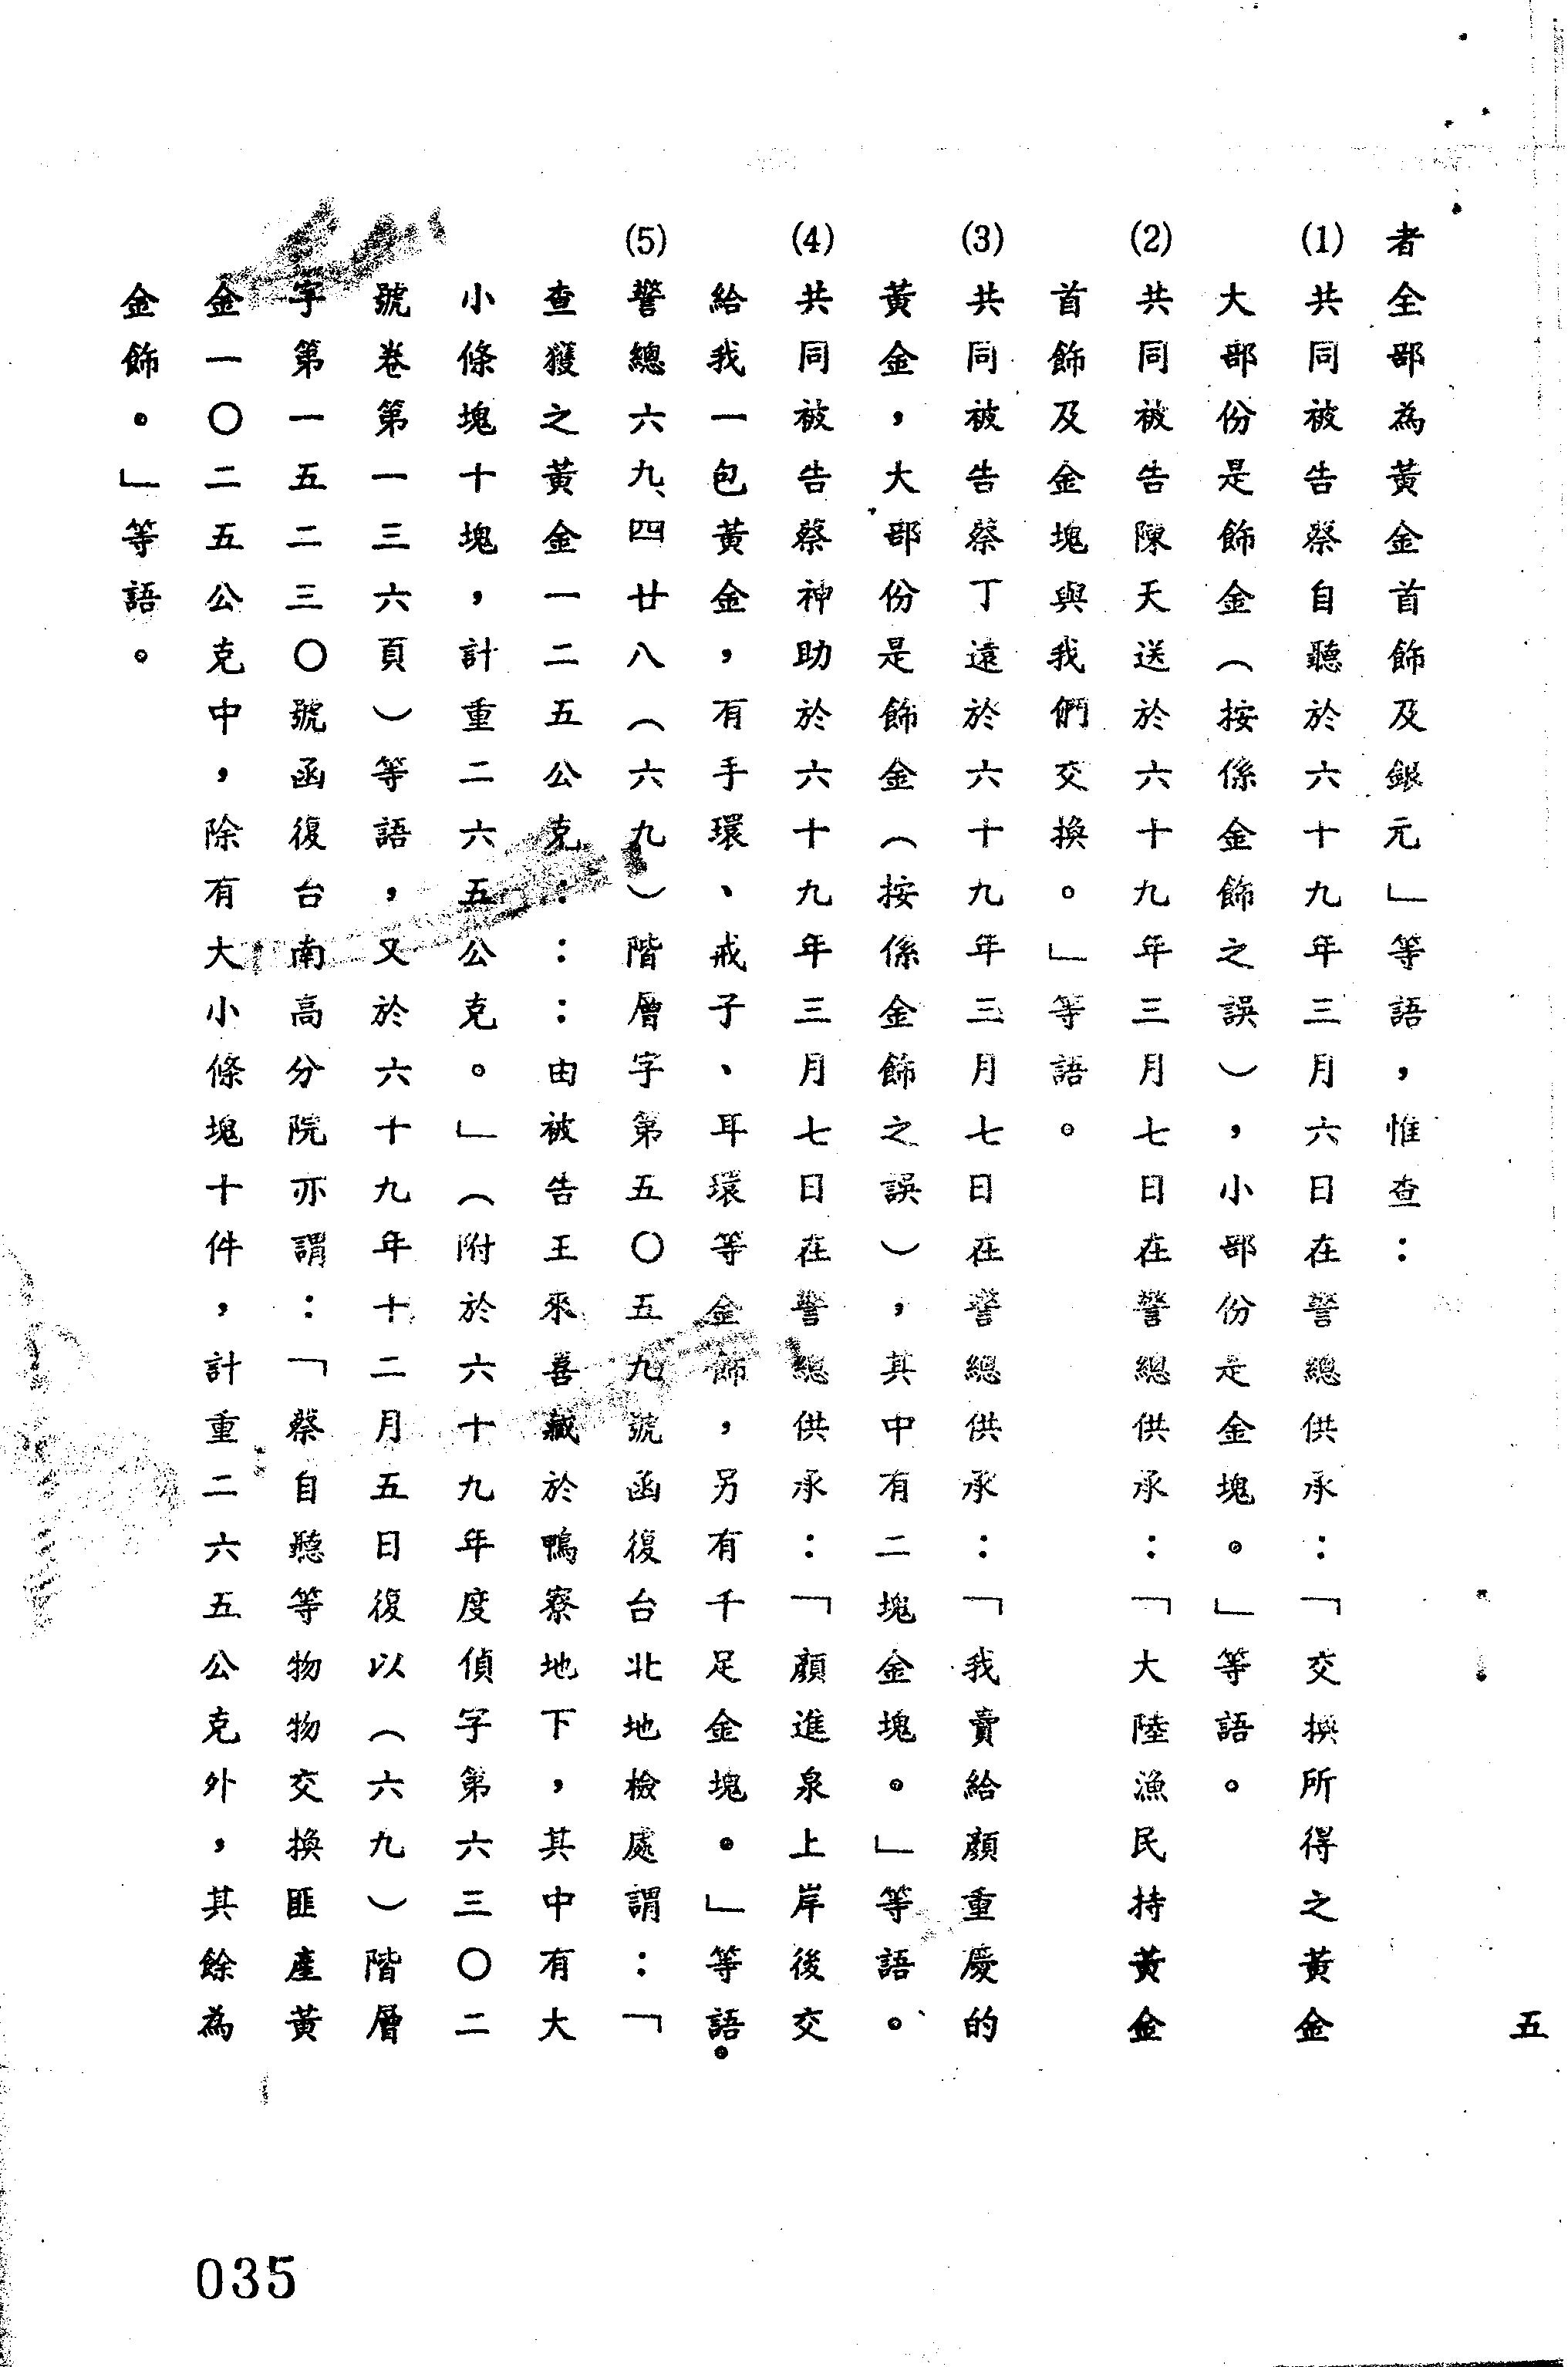 五
者全部為黃金首飾及銀元」等語，惟查：
(1)共同被告蔡自聽於六十九年三月六日在警總供承：「交換所得之黃金
大部份是飾金（按係金飾之誤），小部份是金塊。」等語。
(2)共同被告陳天送於六十九年三月七日在警總供承：「大陸漁民持黃金
首飾及金塊與我們交換。」等語。
(3)共同被告蔡丁遠於六十九年三月七日在警總供承：「我賣給顏重慶的
黃金，大部份是飾金（按係金飾之誤），其中有二塊金塊。」等語。
(4)共同被告蔡神助於六十九年三月七日在警總供承：「顏進泉上岸後交
給我一包黃金，有手環、戒子、耳環等金飾，另有千足金塊。」等語。
(5)警總六九、四廿八（六九）階層字第五〇五九號函復台北地檢處謂：「
查獲之黃金一二五公克：：：由被告王來喜藏於鴨寮地下，其中有大
小條塊十塊，計重二六五公克。」（附於六十九年度偵字第六三〇二
號卷第一三六頁）等語，又於六十九年十二月五日復以（六九）階層
字第一五二三〇號函復台南高分院亦謂：「蔡自聽等物物交換匪產黃
金一〇二五公克中，除有大小條塊十件，計重二六五公克外，其餘為
金飾。」等語。
035